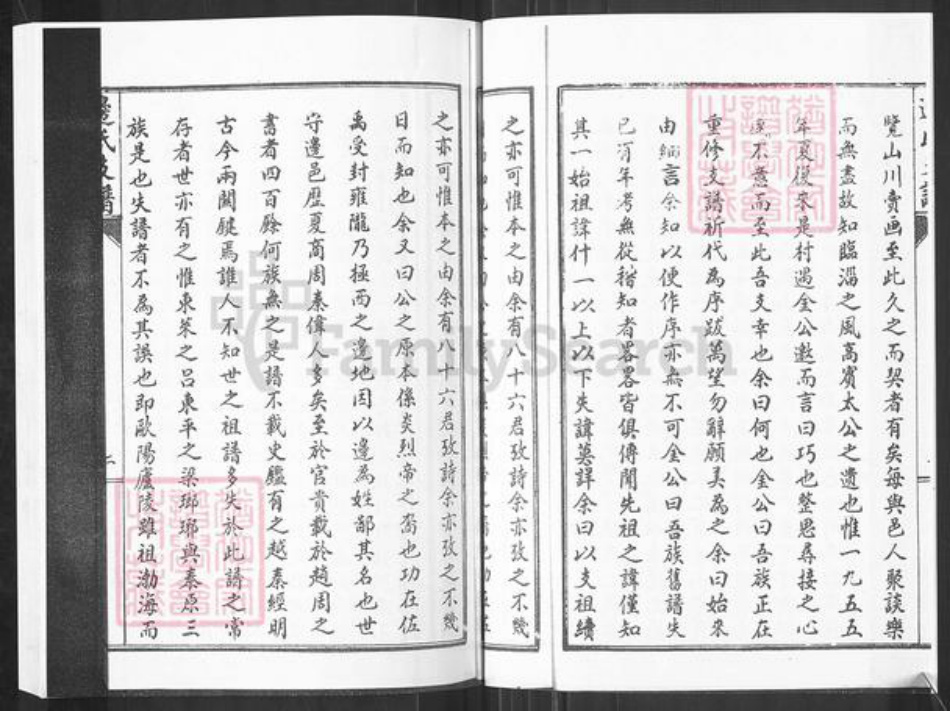 覽山川賣画至此久之而契者有矣每與邑人聚談樂
而無盡故知臨淄之風高賓太公之遺也惟一九五五
年夏復來是村遇金公邀而言曰巧也整思尋接之心
不慈而至此吾支幸也余曰何也金公曰吾族正在
重修支譜祈代為序跋萬望勿辭願美為之余曰始來
由 言余知以便作序亦無不可金公曰吾族舊譜失
已有年考無從稽知者畧畧皆俱傳聞先祖之諱僅知
其一始祖諱什一以上以下失諱莫詳余曰以支祖續
之亦可惟本之由余有八十六君攷詩余亦攷之不幾
之亦可惟本之由余有八十六君攷詩余亦攷之不幾
日而知也余又曰公之原本係炎烈帝之裔也功在佐
禹受封雍隴乃極西之邊地因以邊為姓鄗其名也世
守邊邑歷夏商周秦偉人多矣至於官貴載於趙周之
書者四百餘何族無之是譜不載史鑑有之越秦經明
古今兩關鍵焉誰人不知世之祖譜多失於此譜之常
存者世亦有之惟東萊之呂東平之梁瑯琊與泰原三
族是也失譜者不為其誤也即歐陽廬陵雖祖渤海而
邊氏支譜
FamilySearch